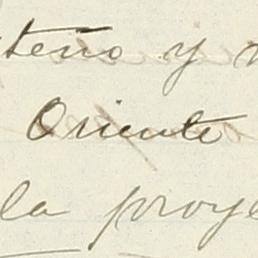 teño y
Oriente
la proye